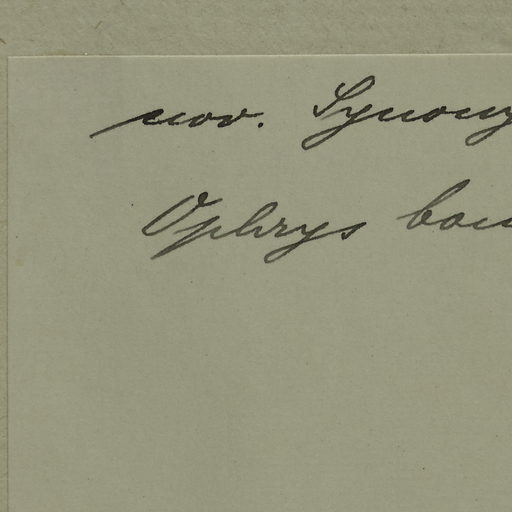 nov. Synony
Ophrys bou